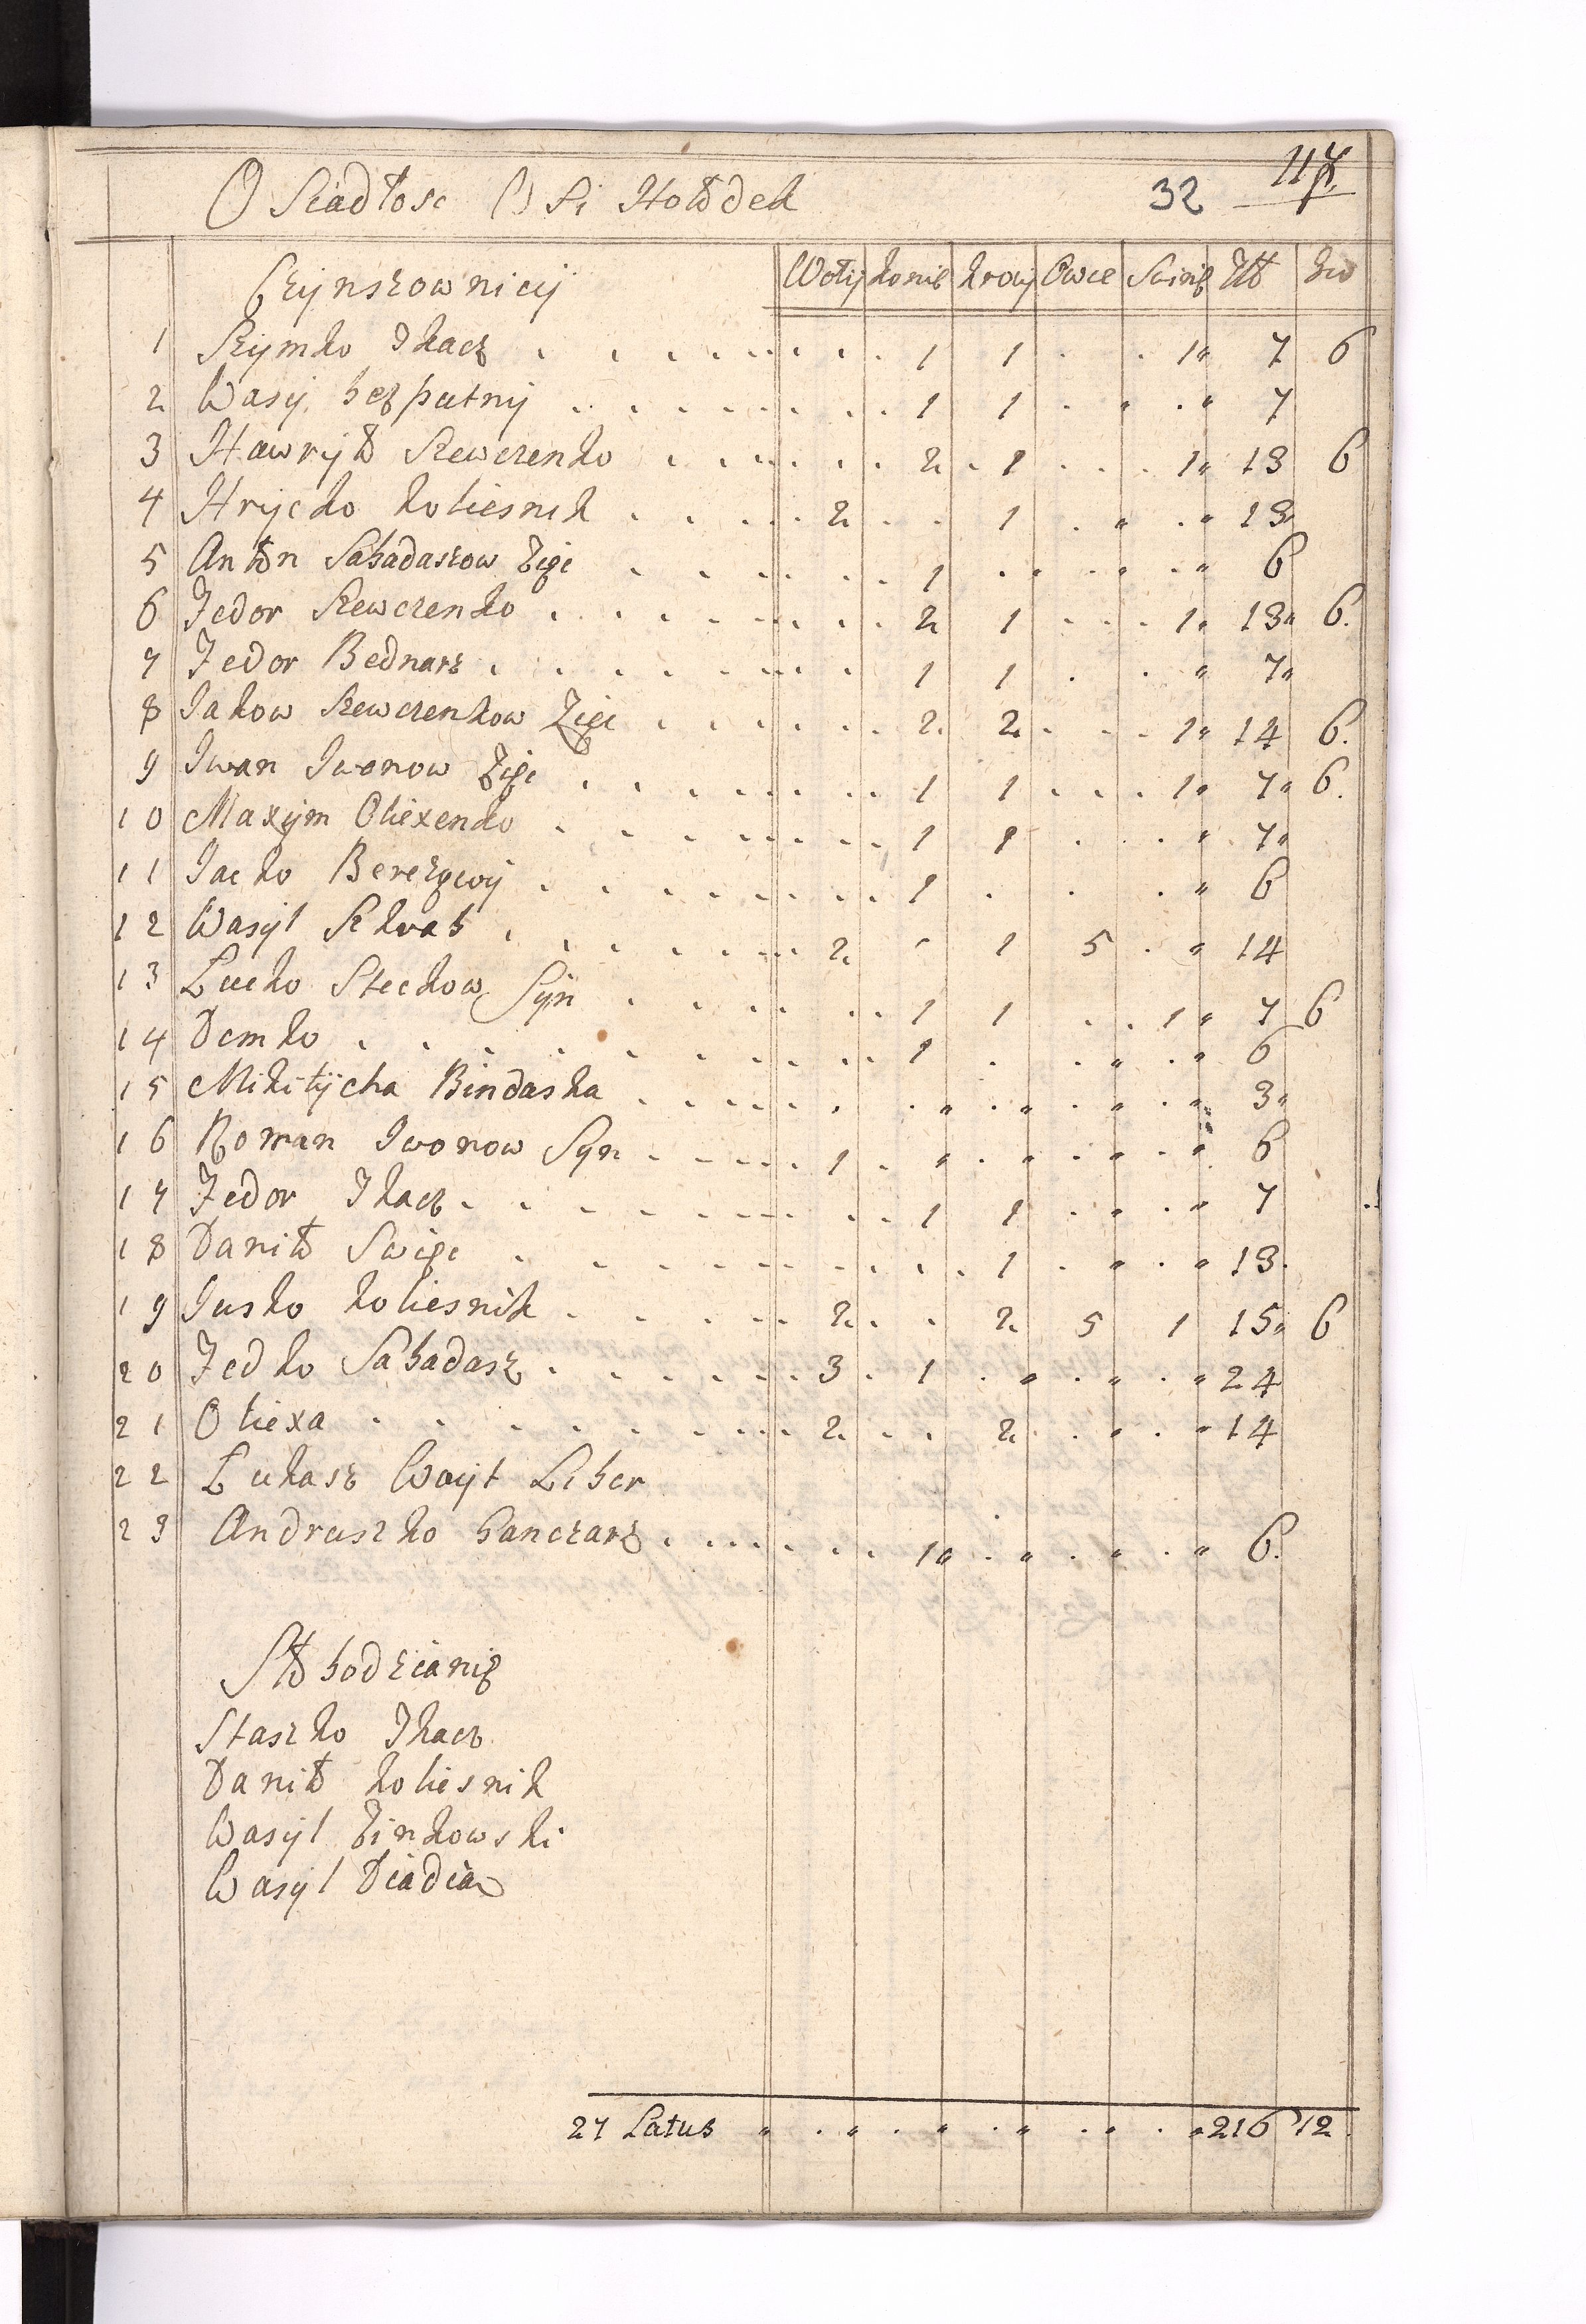 Osiadłosc Wsi Hołodek 32 117.
Czynszownicy Woły konie krowy Owce Swinie Zł Gro
1 Szymko Tkacz 1 1 1 7 6
2 Wasy bezputny 1 1 7
3 Hawryło Szewczenko 2 1 1 13 6
4 Hrycko koliesnik 2 1 13
5 Anton Sabadaszow Zięc 1 6
6 Fedor Szewczenko 2 1 1 13 6.
7 Fedor Bednarz 1 1 7
8 Jakow Szewczenkow Zięc 2 2 1 14 6.
9 Iwan Iwonow Zięc 1 1 1 7 6.
10 Maxym Oliexenko 1 1 7
11 Jacko Berezowy 1 6
12 Wasyl Szkrab 2 1 5 14
13 Lucko Steckow Syn 1 1 1 7 6
14 Demko 1 6
15 Mikitycha Bindaska 3
16 Roman Iwonow Syn 1 6
17 Fedor Tkacz 1 1 7
18 Daniło Swięc 1 13
19 Jusko koliesnik 2 2 5 1 15 6
20 Fedko Sabadasz 3 1 24
21 Oliexa 2 2 14
22 Łukasz Woyt Liber
23 Andruszko Banczarz 1 6.
Słobodzianie
Staszko Tkacz
Daniło koliesnik
Wasyl Zinkowski
Wasyl Diadia
27 Latus 216 12.